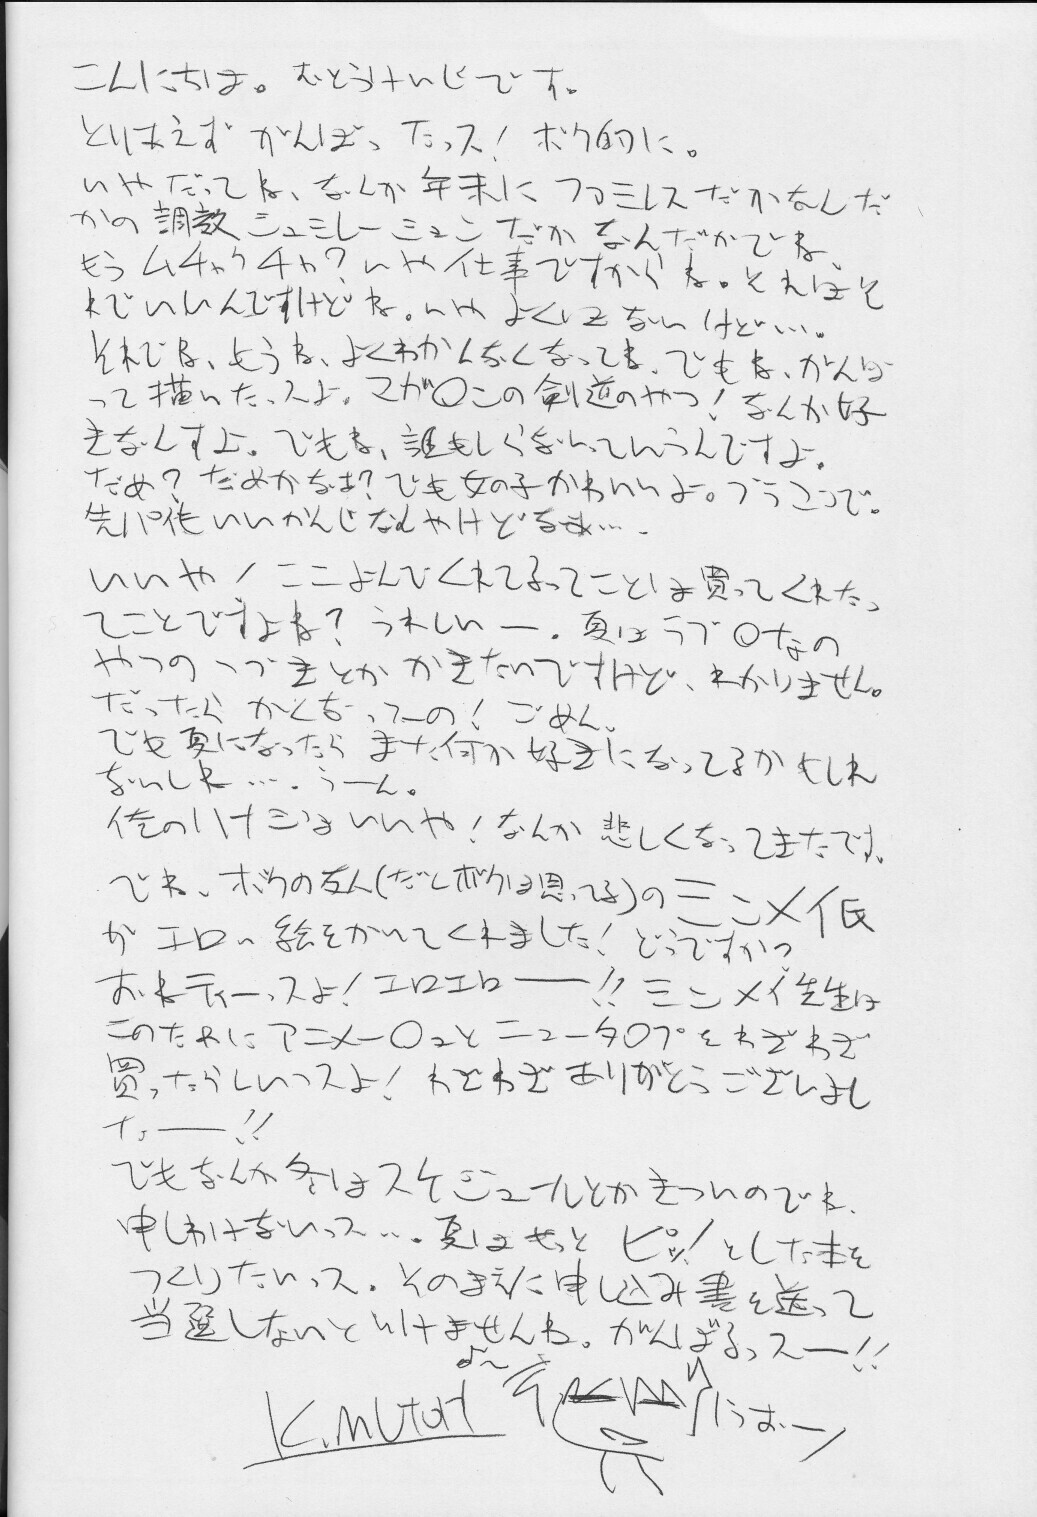 こんにちは。むとうけいじです。
とりあえずがんばったっス!ボク的に。
いやだってね、なんか年末にファミレスだかなんだ
かの調教シュミレーションだかなんだかでね、
もうムチャクチャ?いや仕事ですからね。それはそ
れでいいんですけどね。いやよくはないけど…。
それでね、もうね、よくわかんなくなってね、でもね、がんば
って描いたっスよ。マガ〇この剣道のやつ!なんか好
きなんすよ。でもね、誰もしらないっていうんですよ。
だめ?だめかなぁ?でも女の子かわいいよ。ブラこつで。
先パイもいいかんじなんやけどなぁ…。
いいや!ここよんでくれてるってことは買ってくれたっ
てことですよね?うれしいー。夏はラブ〇なの
やつのつづきとかかきたいですけど、わかりません。
だったらかくなってーの!ごめん。
でも夏になったらまた何か好きになってるかもしれ
ないしね…。うーん。
俺のハナシはいいや!なんか悲しくなってきたです。
でね、ボクの友人(だとボクは思ってる)のミンメイ氏
がエロい絵をかいてくれました!どうですかっ
おねティーっスよ!エロエローー!!ミンメイ先生は
このためにアニメー〇ュとニュータ〇プをわざわざ
買ったらしいっスよ!わざわざありがとうございまし
たー!!
でもなんか冬はスケジュールとかきついのでね、
申しわけないっス…。夏はもっとピシッ!とした本を
つくりたいっス。そのまえに申し込み書を送って
当選しないといけませんね。がんばるっスー!!
K.MUtoH
うおー